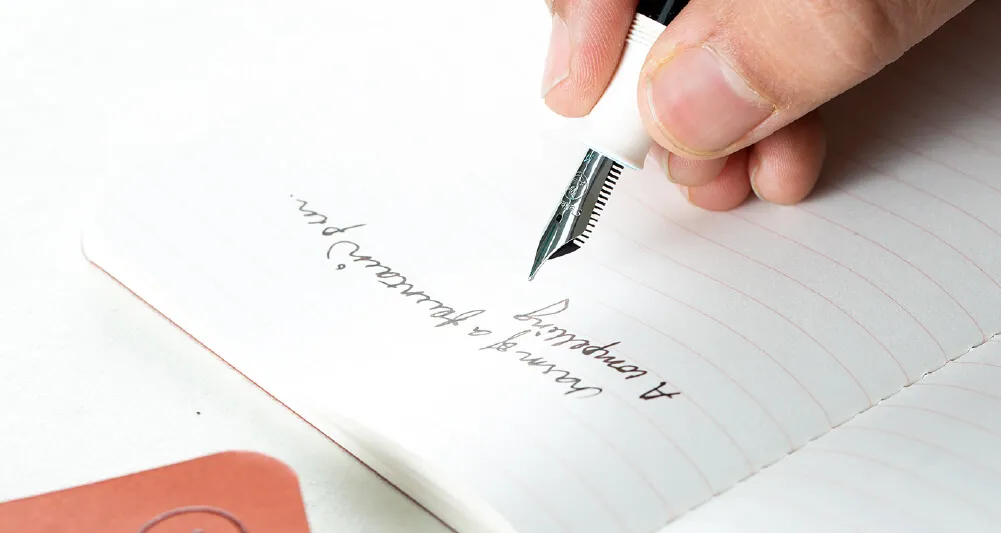 A compelling
charm of a fountain pen.